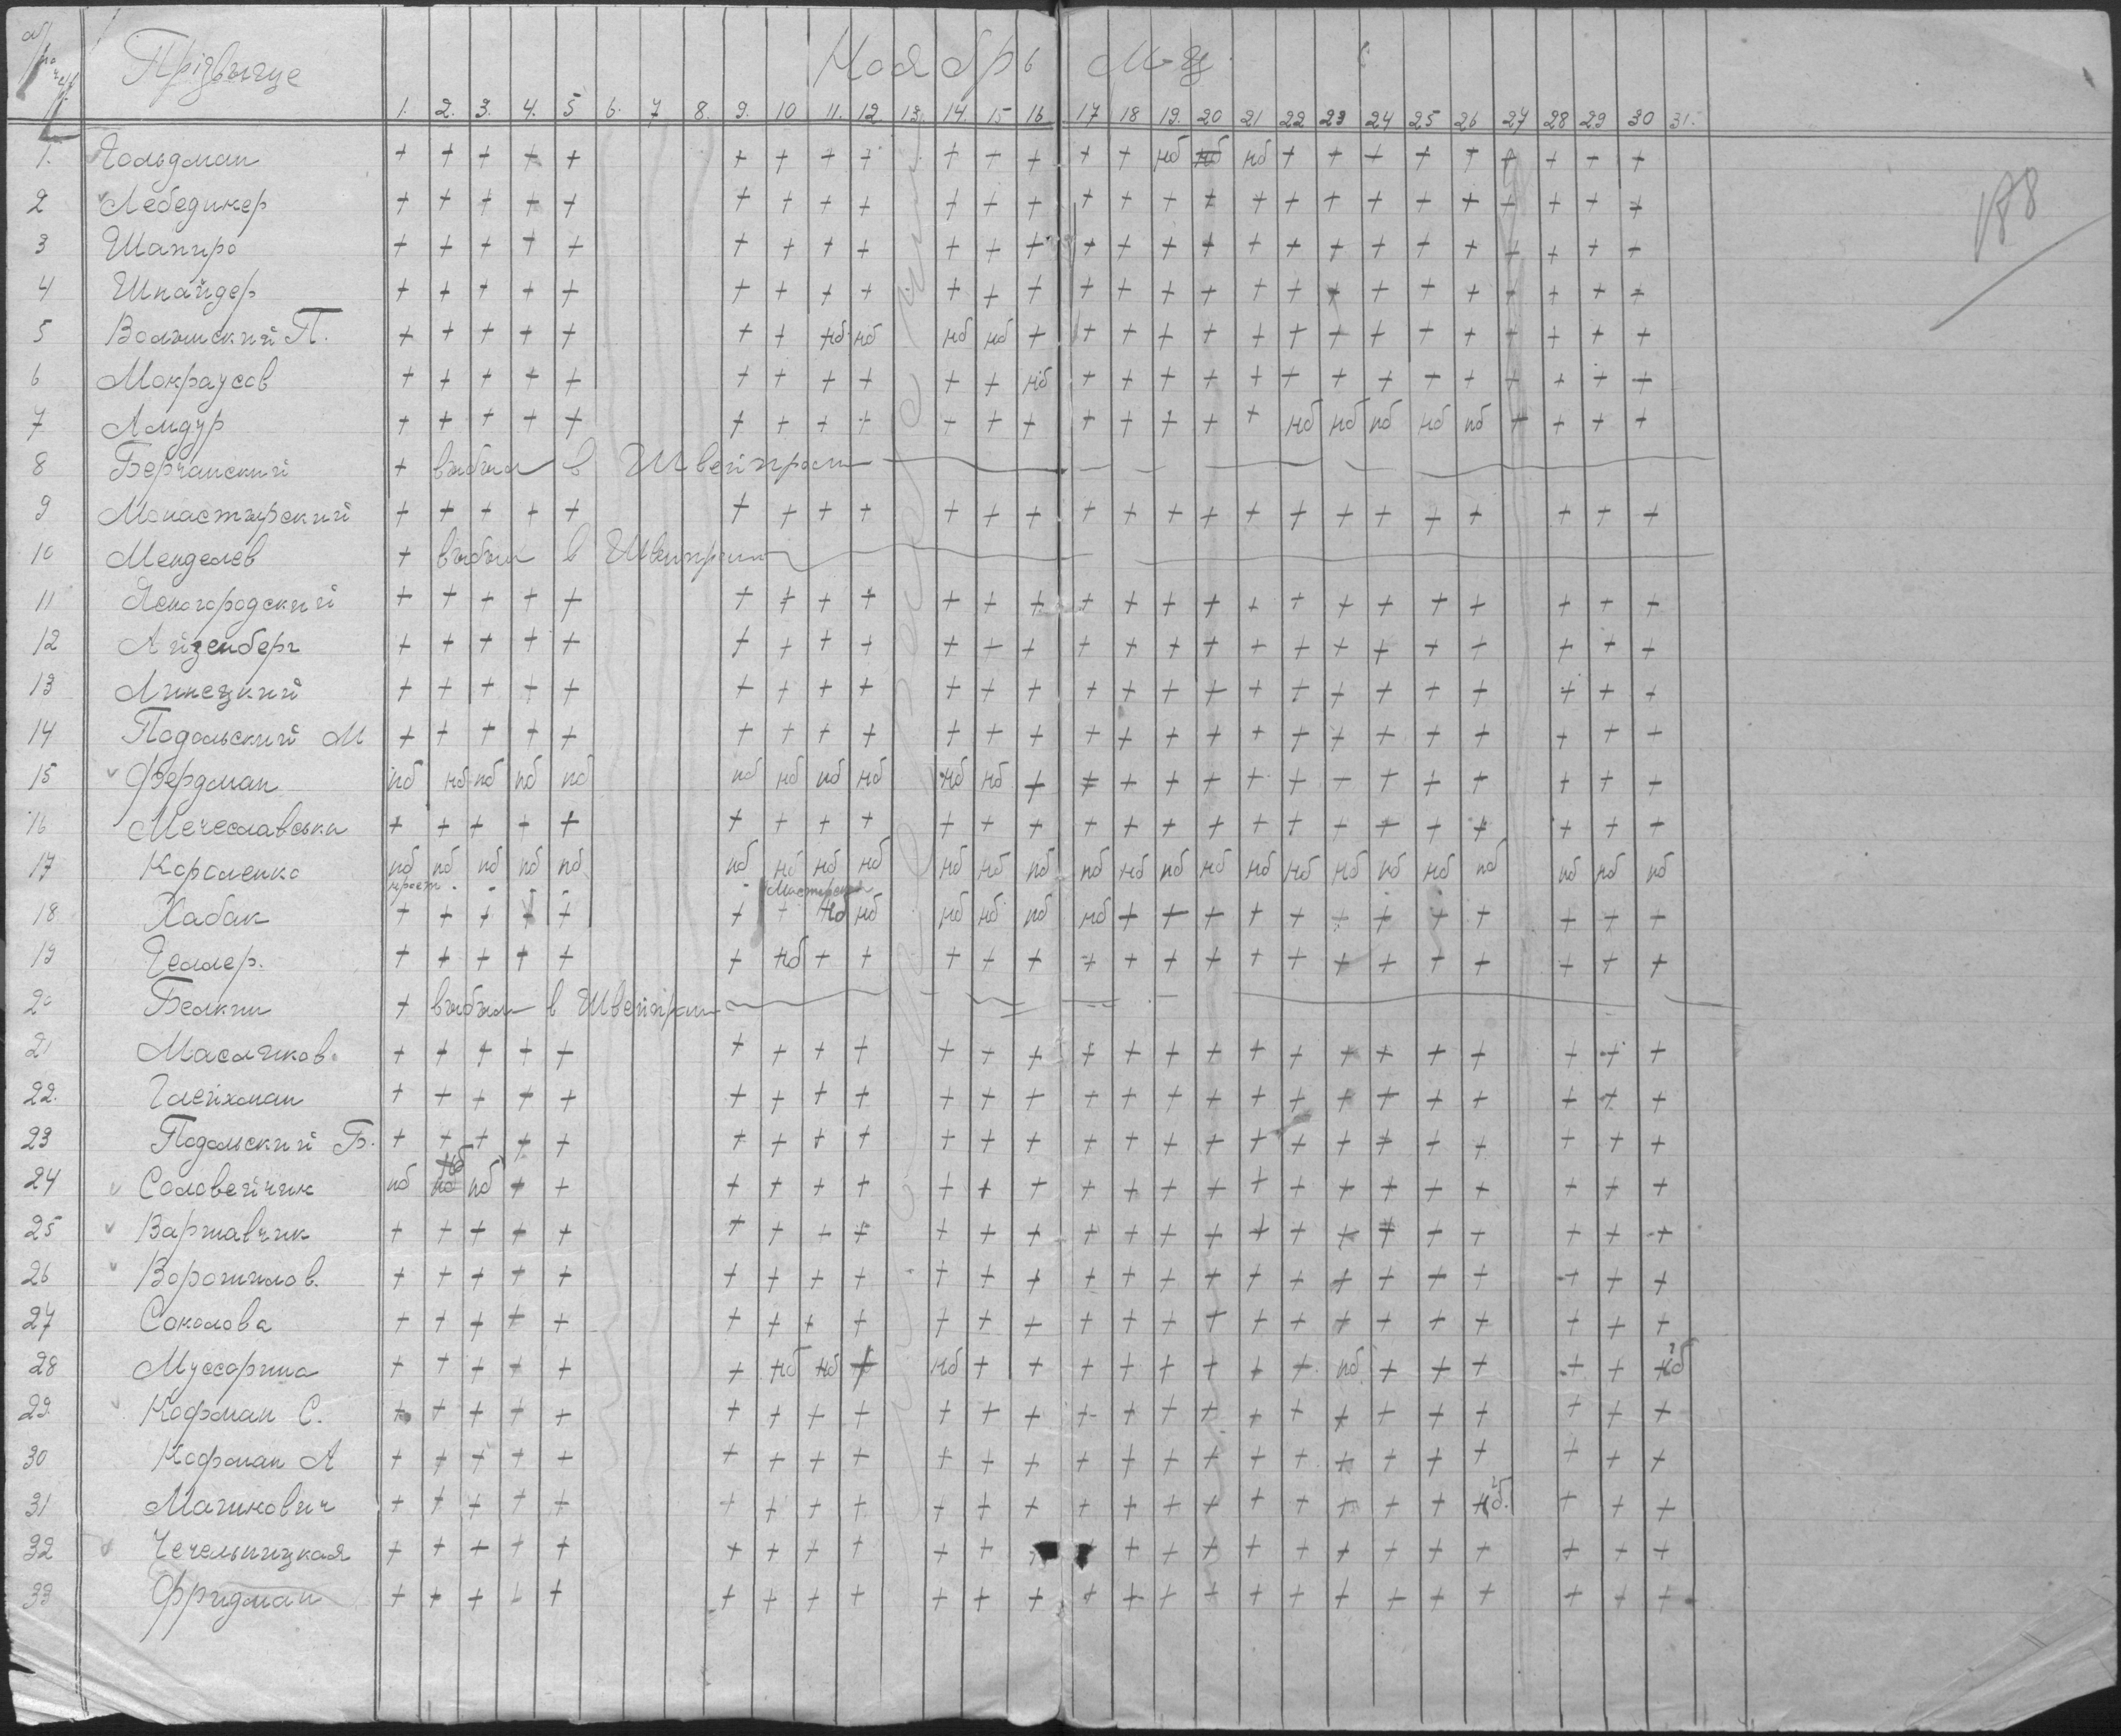 Прізвыще Ноябрь М-ц
1. 2. 3. 4. 5 6. 7 8. 9. 10 11. 12. 13. 14. 15 16 17 18 19. 20 21 22 23 24 25 26 27 28 29 30 31.
1. Гольдман + + + + + + + + + + + + + + нб нб нб + + + + + + + + +
2 Лебединер + + + + + + + + + + + + + + + + + + + + + + + + + +
3 Шапиро + + + + + + + + + + + + + + + + + + + + + + + + + +
4 Шнайдер + + + + + + + + + + + + + + + + + + + + + + + + + +
5 Волынский П. + + + + + + + нб нб нб нб + + + + + + + + + + + + + + +
6 Мокраусов + + + + + + + + + + + нб + + + + + + + + + + + + + +
7 Амдур + + + + + + + + + + + + + + + + + нб нб нб нб нб + + + +
8 Берчанский + выбыл в Швейпром
9 Монастырский + + + + + + + + + + + + + + + + + + + + + + + + +
10 Менделев + выбыл в Швейпром
11 Ясногородский + + + + + + + + + + + + + + + + + + + + + + + + +
12 Айзенберг + + + + + + + + + + + + + + + + + + + + + + + + +
13 Линецкий + + + + + + + + + + + + + + + + + + + + + + + + +
14 Подольский М + + + + + + + + + + + + + + + + + + + + + + + + +
15 Фердман нб нб нб нб нб нб нб нб нб нб нб + + + + + + + + + + + + + +
16 Мечеславськи + + + + + + + + + + + + + + + + + + + + + + + + +
17 Короленко нб нб нб нб нб нб нб нб нб нб нб нб нб нб нб нб нб нб нб нб нб нб нб нб нб
18 Хабак + + + + + + + нб нб нб нб нб нб + + + + + + + + + + + +
19 Геллер. + + + + + + нб + + + + + + + + + + + + + + + + + +
20 Белкин + выбыл в Швейпром
21 Масляков. + + + + + + + + + + + + + + + + + + + + + + + + +
22. Глейхман + + + + + + + + + + + + + + + + + + + + + + + + +
23 Подольский Б. + + + + + + + + + + + + + + + + + + + + + + + + +
24 Соловейчик нб нб нб + + + + + + + + + + + + + + + + + + + + + +
25 Варшавчик + + + + + + + + + + + + + + + + + + + + + + + + +
26 Ворошилов. + + + + + + + + + + + + + + + + + + + + + + + + +
27 Соколова + + + + + + + + + + + + + + + + + + + + + + + + +
28 Муссорина + + + + + + нб нб + нб + + + + + + + + нб + + + + + нб
29 Кофман С. + + + + + + + + + + + + + + + + + + + + + + + + +
30 Кофман А + + + + + + + + + + + + + + + + + + + + + + + + +
31 Магинович + + + + + + + + + + + + + + + + + + + + + нб. + + +
32 Чечельницкая + + + + + + + + + + + + + + + + + + + + + + + + +
33 Фридман + + + + + + + + + + + + + + + + + + + + + + + + +
188